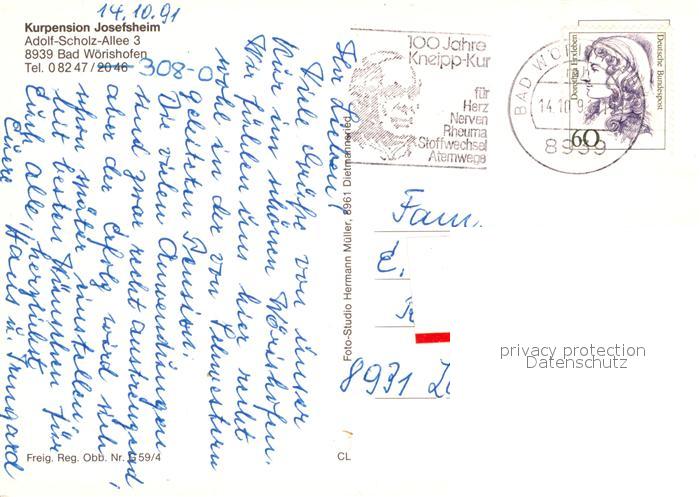 14.10.91
Kurpension Josefsheim
Adolf-Scholz-Allee 3
8939 Bad Wörishofen
Tel. 0 82 47 / 20 46 308-0
Ihr Lieben!
Viele Grüße von unser
Kur im schönen Wörishofen.
Wir fühlen uns hier recht
wohl in der von Schwestern
geleiteten Pension.
Die vielen Anwendungen
sind zwar recht anstrengend,
aber der Erfolg wird sich
schon später einstellen.
Mit besten Wünschen für
Euch alle, herzlichst
Euere
Hans u. Irmgard
Freig. Reg. Obb. Nr. G 59/4
CL
Foto-Studio Hermann Müller, 8961 Dietmannsried
100 Jahre
Kneipp-Kur
für
Herz
Nerven
Rheuma
Stoffwechsel
Atemwege
BAD WÖ
14.10.9
8939
Dorothea Erxleben
Deutsche Bundespost
60
Fam.
E.
8931
privacy protection
Datenschutz